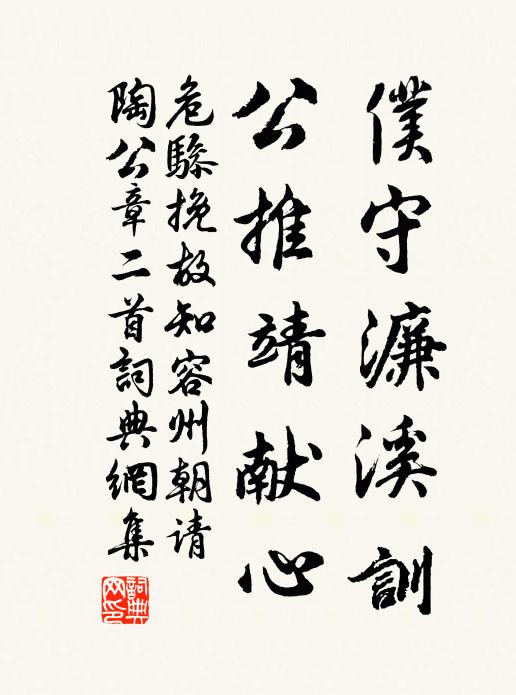 僕守濂溪訓
公推靖献心
危驂挽故知容州朝请
陶公章二首詞典網集
詞典网印